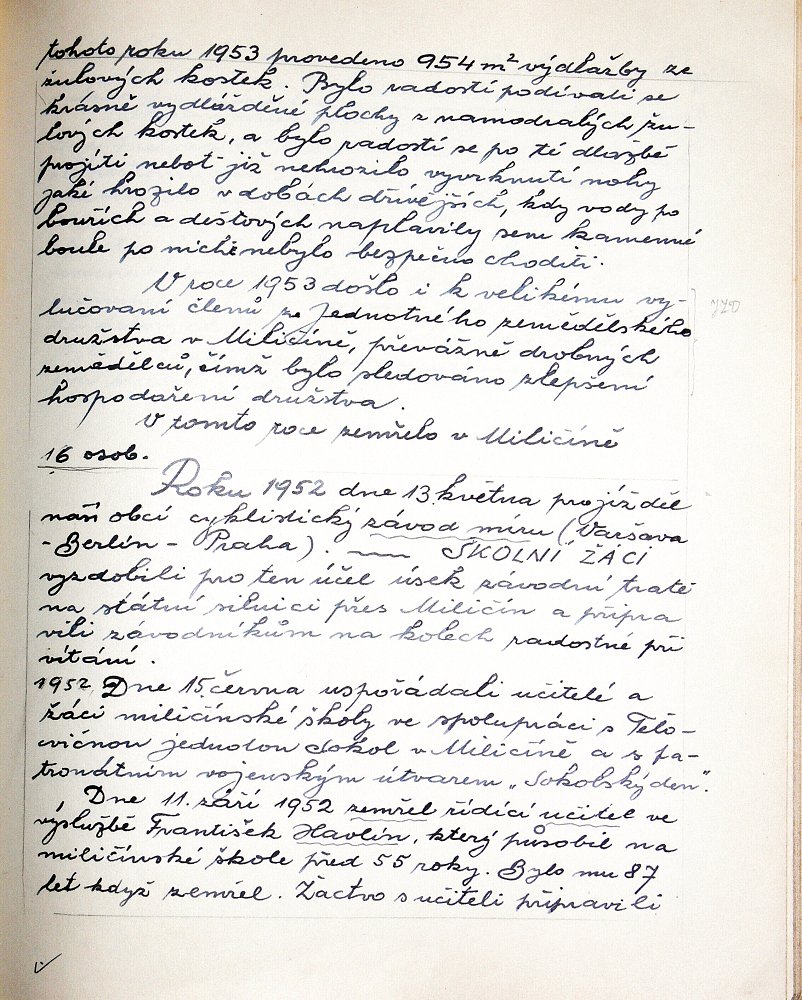 tohoto roku 1953 provedeno 954 m² výdlažby ze
žulových kostek. Bylo radostí podívati se
krásně vydlážděné plochy z namodralých žu-
lových kostek, a bylo radostí se po té dlažbě
projíti neboť již nehrozilo vyvrknutí nohy
jaké hrozilo v dobách dřívějších, kdy vody po
bouřích a dešťových naplavily sem kamenné
boule po nichž nebylo bezpečno choditi.
V roce 1953 došlo i k velikému vy-
lučovaní členů ze Jednotného zemědělského
JZD
družstva v Miličíně, převážně drobných
zemědělců, čímž bylo sledováno zlepšení
hospodaření družstva.
V tomto roce zemřelo v Miličíně
16 osob.
Roku 1952 dne 13. května projížděl
naší obcí cyklistický závod míru (Varšava
- Berlín - Praha). — ŠKOLNÍ ŽÁCI
vyzdobili pro ten účel úsek závodní tratě
na státní silnici přes Miličín a připra
vili závodníkům na kolech radostné při
vítání.
1952 Dne 15. června uspořádali učitelé a
žáci miličínské školy ve spolupráci s Tělo-
cvičnou jednotou Sokol v Miličíně a s pa-
tronátním vojenským útvarem „Sokolský den".
Dne 11. září 1952 zemřel řídící učitel ve
výslužbě František Havlín, který působil na
miličínské škole před 55 roky. Bylo mu 87
let když zemřel. Žactvo s učiteli připravili